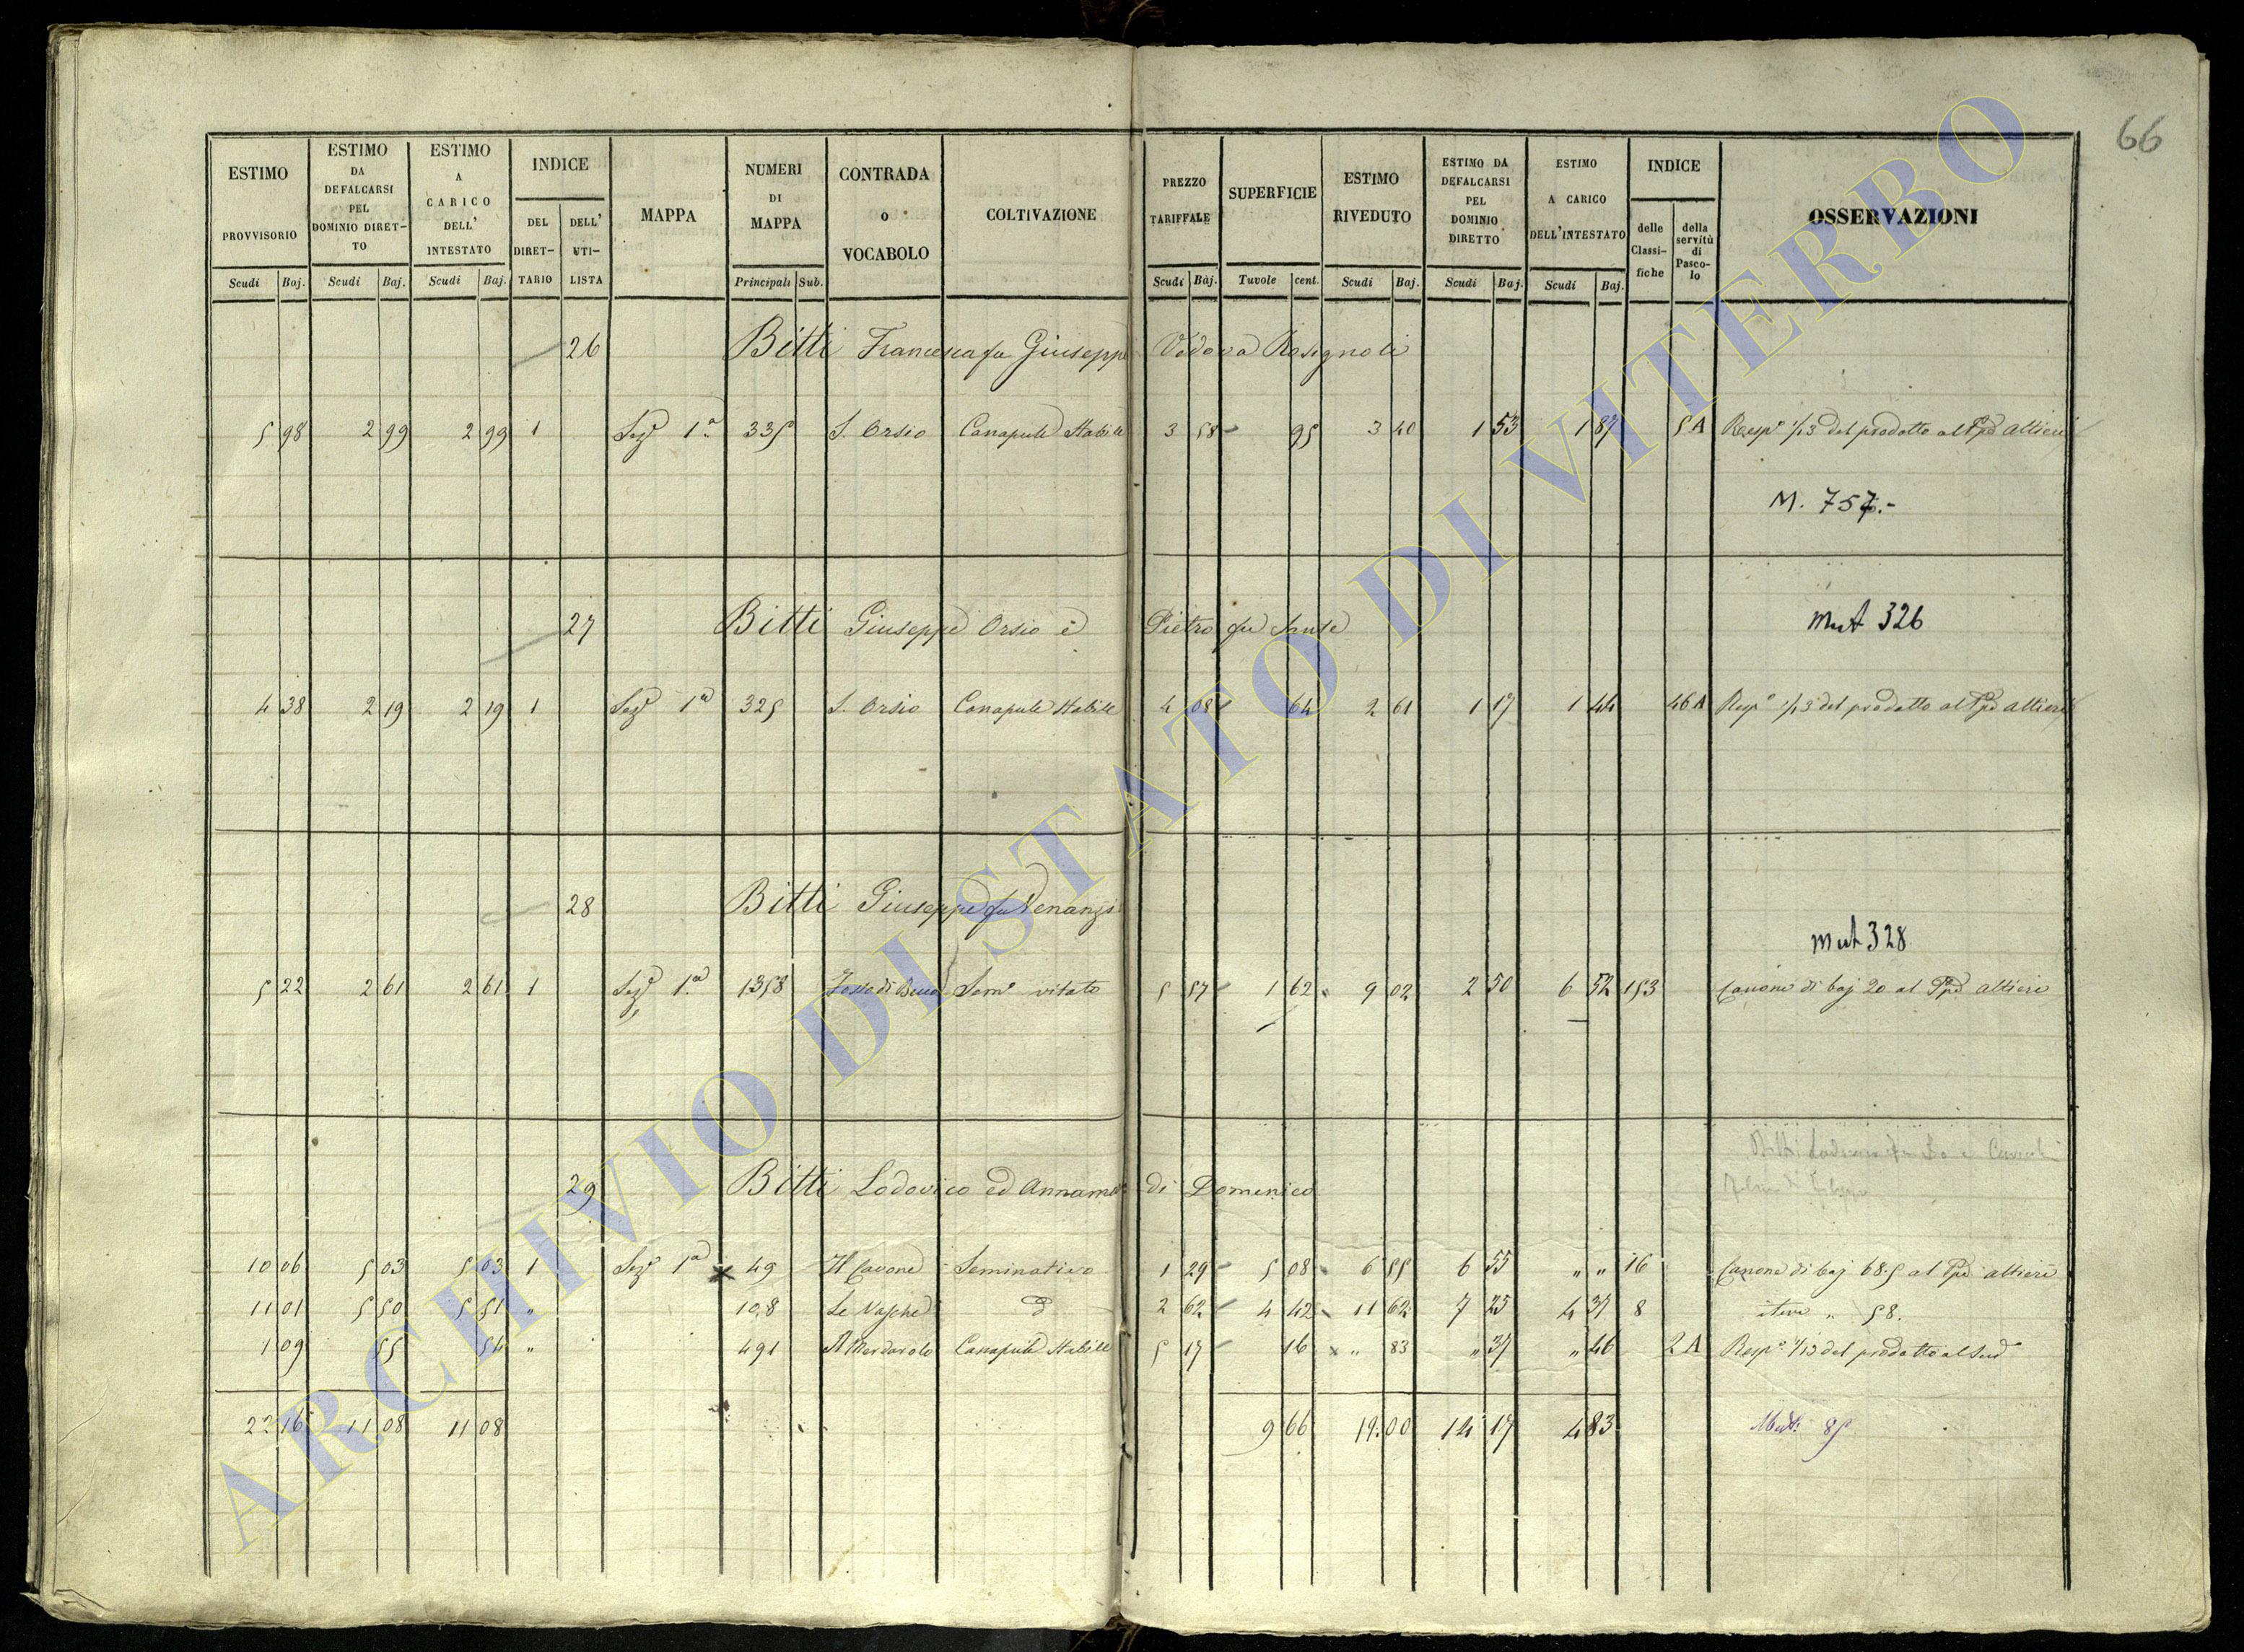 66
ESTIMO PROVVISORIO Scudi Baj.
ESTIMO DA DEFALCARSI PEL DOMINIO DIRETTO Scudi Baj.
ESTIMO A CARICO DELL' INTESTATO Scudi Baj.
INDICE DEL DIRETTARIO DELL' UTILISTA
MAPPA
NUMERI DI MAPPA Principali Sub.
CONTRADA o VOCABOLO
COLTIVAZIONE
PREZZO TARIFFALE Scudi Baj.
SUPERFICIE Tavole cent.
ESTIMO RIVEDUTO Scudi Baj.
ESTIMO DA DEFALCARSI PEL DOMINIO DIRETTO Scudi Baj.
ESTIMO A CARICO DELL'INTESTATO Scudi Baj.
INDICE delle Classifiche della servitù di Pascolo
OSSERVAZIONI
26 Bitti Francesca fu Giuseppe Vedova Rosignoli
5 98 2 99 2 99 1 Sez.e 1.a 335 S. Orsio Canapule Stabile 3 58 95 3 40 1 53 1 87 5A Resp.e 1/13 del prodotto al Ppe Altieri
M. 757.-
27 Bitti Giuseppe Orsio e Pietro fu Sante
Mut 326
4 38 2 19 2 19 1 Sez.e 1a 325 S. Orsio Canapule Stabile 4 08 64 2 61 1 17 1 44 46A Resp.e 1/13 del prodotto al Ppe Altieri
28 Bitti Giuseppe fu Venanzio
Mut 328
5 22 2 61 2 61 1 Sez.e 1.a 1358 Semo vitato 5 57 1 62 9 02 2 50 6 52 153 Canone di baj 20 al Ppe Altieri
29 Bitti Lodovico ed Annama di Domenico
10 06 5 03 5 03 1 Sez.e 1a 49 Il Cavone Seminativo 1 29 5 08 6 55 6 55 " " 16 Canone di baj 68.5 al Ppe Altieri
11 01 5 50 5 51 " 108 Le Vasche d 2 62 4 42 11 62 7 25 4 37 8 item " 58.
1 09 55 54 " 491 Canapule Stabile 5 17 16 " 83 " 37 " 46 2A Resp.e 1/13 del prodotto al Sud.o
22 16 11 08 11 08 9 66 19.00 14 17 4 83 Mut: 85
ARCHIVIO DI STATO DI VITERBO